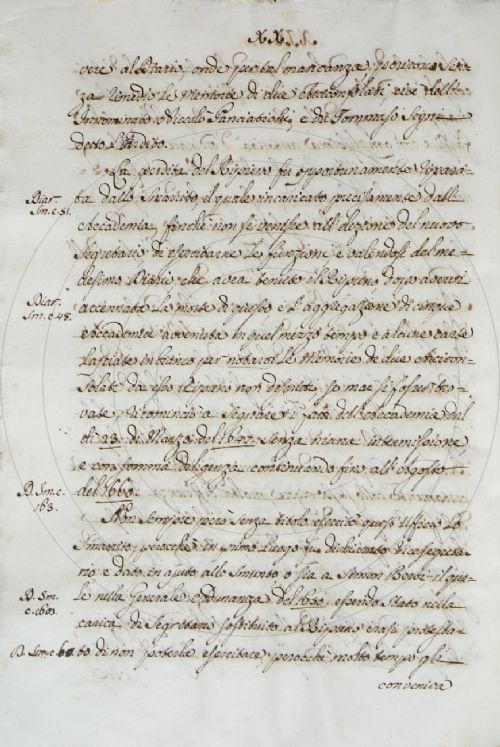 XXII.
vere al Diario, onde per tal mancanza
di due Arciconsolati, cioè dell'
Innominato Niccolò Panciatichi, e di Tommaso Segni
detto l'Ardito.
La perdita del Ripieno fu opportunamente ripara-
ta dallo Smarrito, il quale incaricato precisamente dall'
Accademia, finchè non si venisse all'elezione del nuovo
Segretario di esercitarne le funzioni, e valendosi del me-
desimo Diario che avea tenuto il Ripieno, dopo avervi
accennata la morte di questo e l'aggregazione di cinque
Accademici avvenuta in quel mezzo tempo, e alcune carte
lasciate in bianco per notarvi le Memorie di due Arcicon-
solati da esso Ripieno non distesi, se mai si fossero tro-
vate, ricominciò a segnare i fatti dell'Accademia dal
dì 23. di Marzo del senza niuna intermissione,
e con somma diligenza continuando fino all'Agosto
del 1660.
Non sempre però senza titolo esercitò quest'Uffizio lo
Smarrito, perocchè in primo luogo fu dichiarato Vicesegreta-
rio e dato in ajuto allo Smunto o sia a Simon Berti il qua-
le nella Generale Adunanza del 1650, essendo stato nella
carica di Segretario sostituito al Ripieno erasi protesta-
to di non poterla esercitare, perocchè molto tempo gli
conveniva
Diar.
Sm. c. 51.
Diar.
Sm. c. 48.
D. Sm. c.
163.
D. Sm.
D. Sm. c.